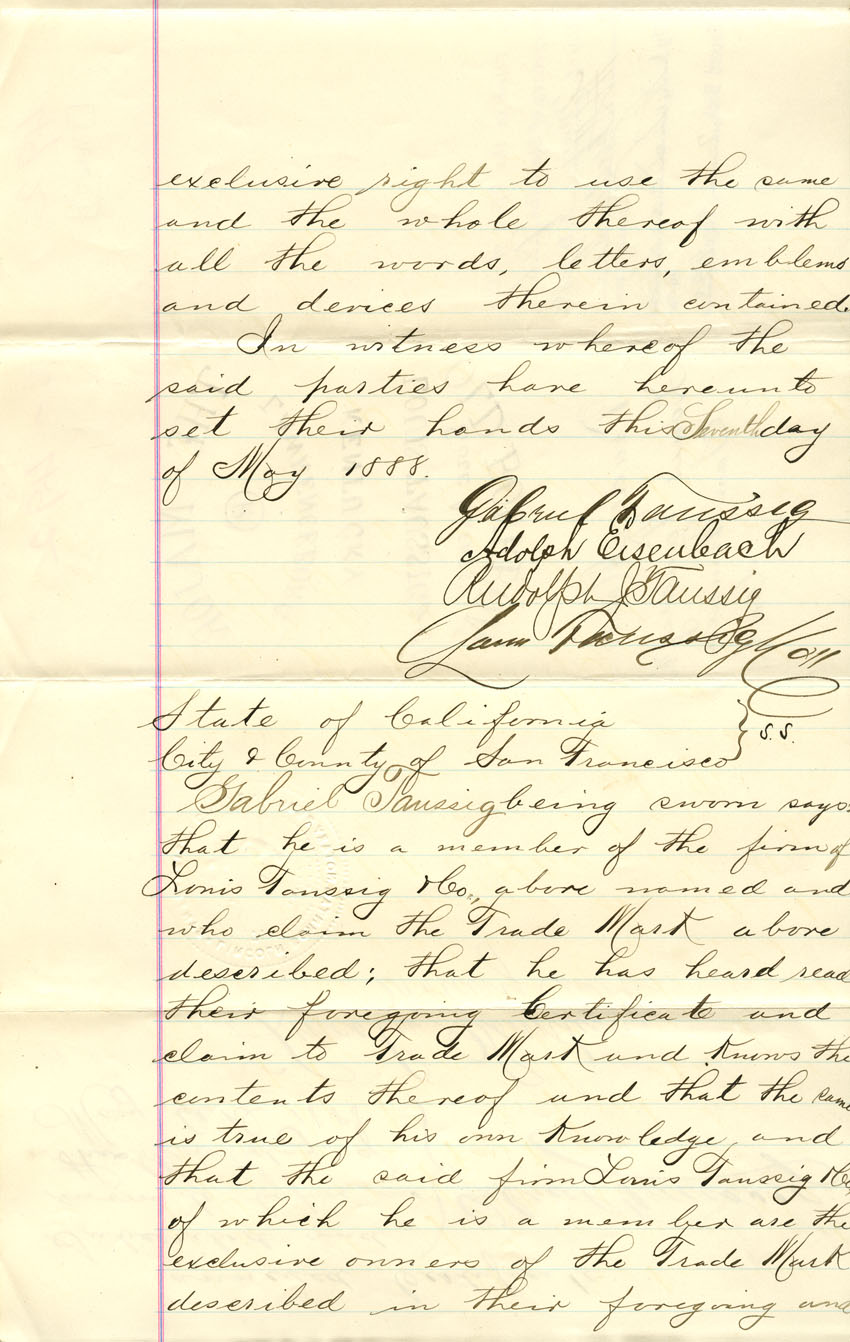 exclusive right to use the same
and the whole thereof with
all the words, letters, emblems
and devices therein contained.
In witness whereof the
said parties have hereunto
set their hands this Seventh day
of May 1888.
Gabriel Taussig
Adolph Eisenbach
Rudolph J Taussig
Louis Taussig & Co
State of California
City & County of San Francisco } s.s.
Gabriel Taussig being sworn says:
that he is a member of the firm of
Louis Taussig & Co., above named and
who claim the Trade Mark above
described; that he has heard read
their foregoing Certificate and
claim to Trade Mark and Knows the
contents thereof and that the same
is true of his own Knowledge, and
that the said firm Louis Taussig & Co
of which he is a member are the
exclusive owners of the Trade Mark
described in their foregoing and